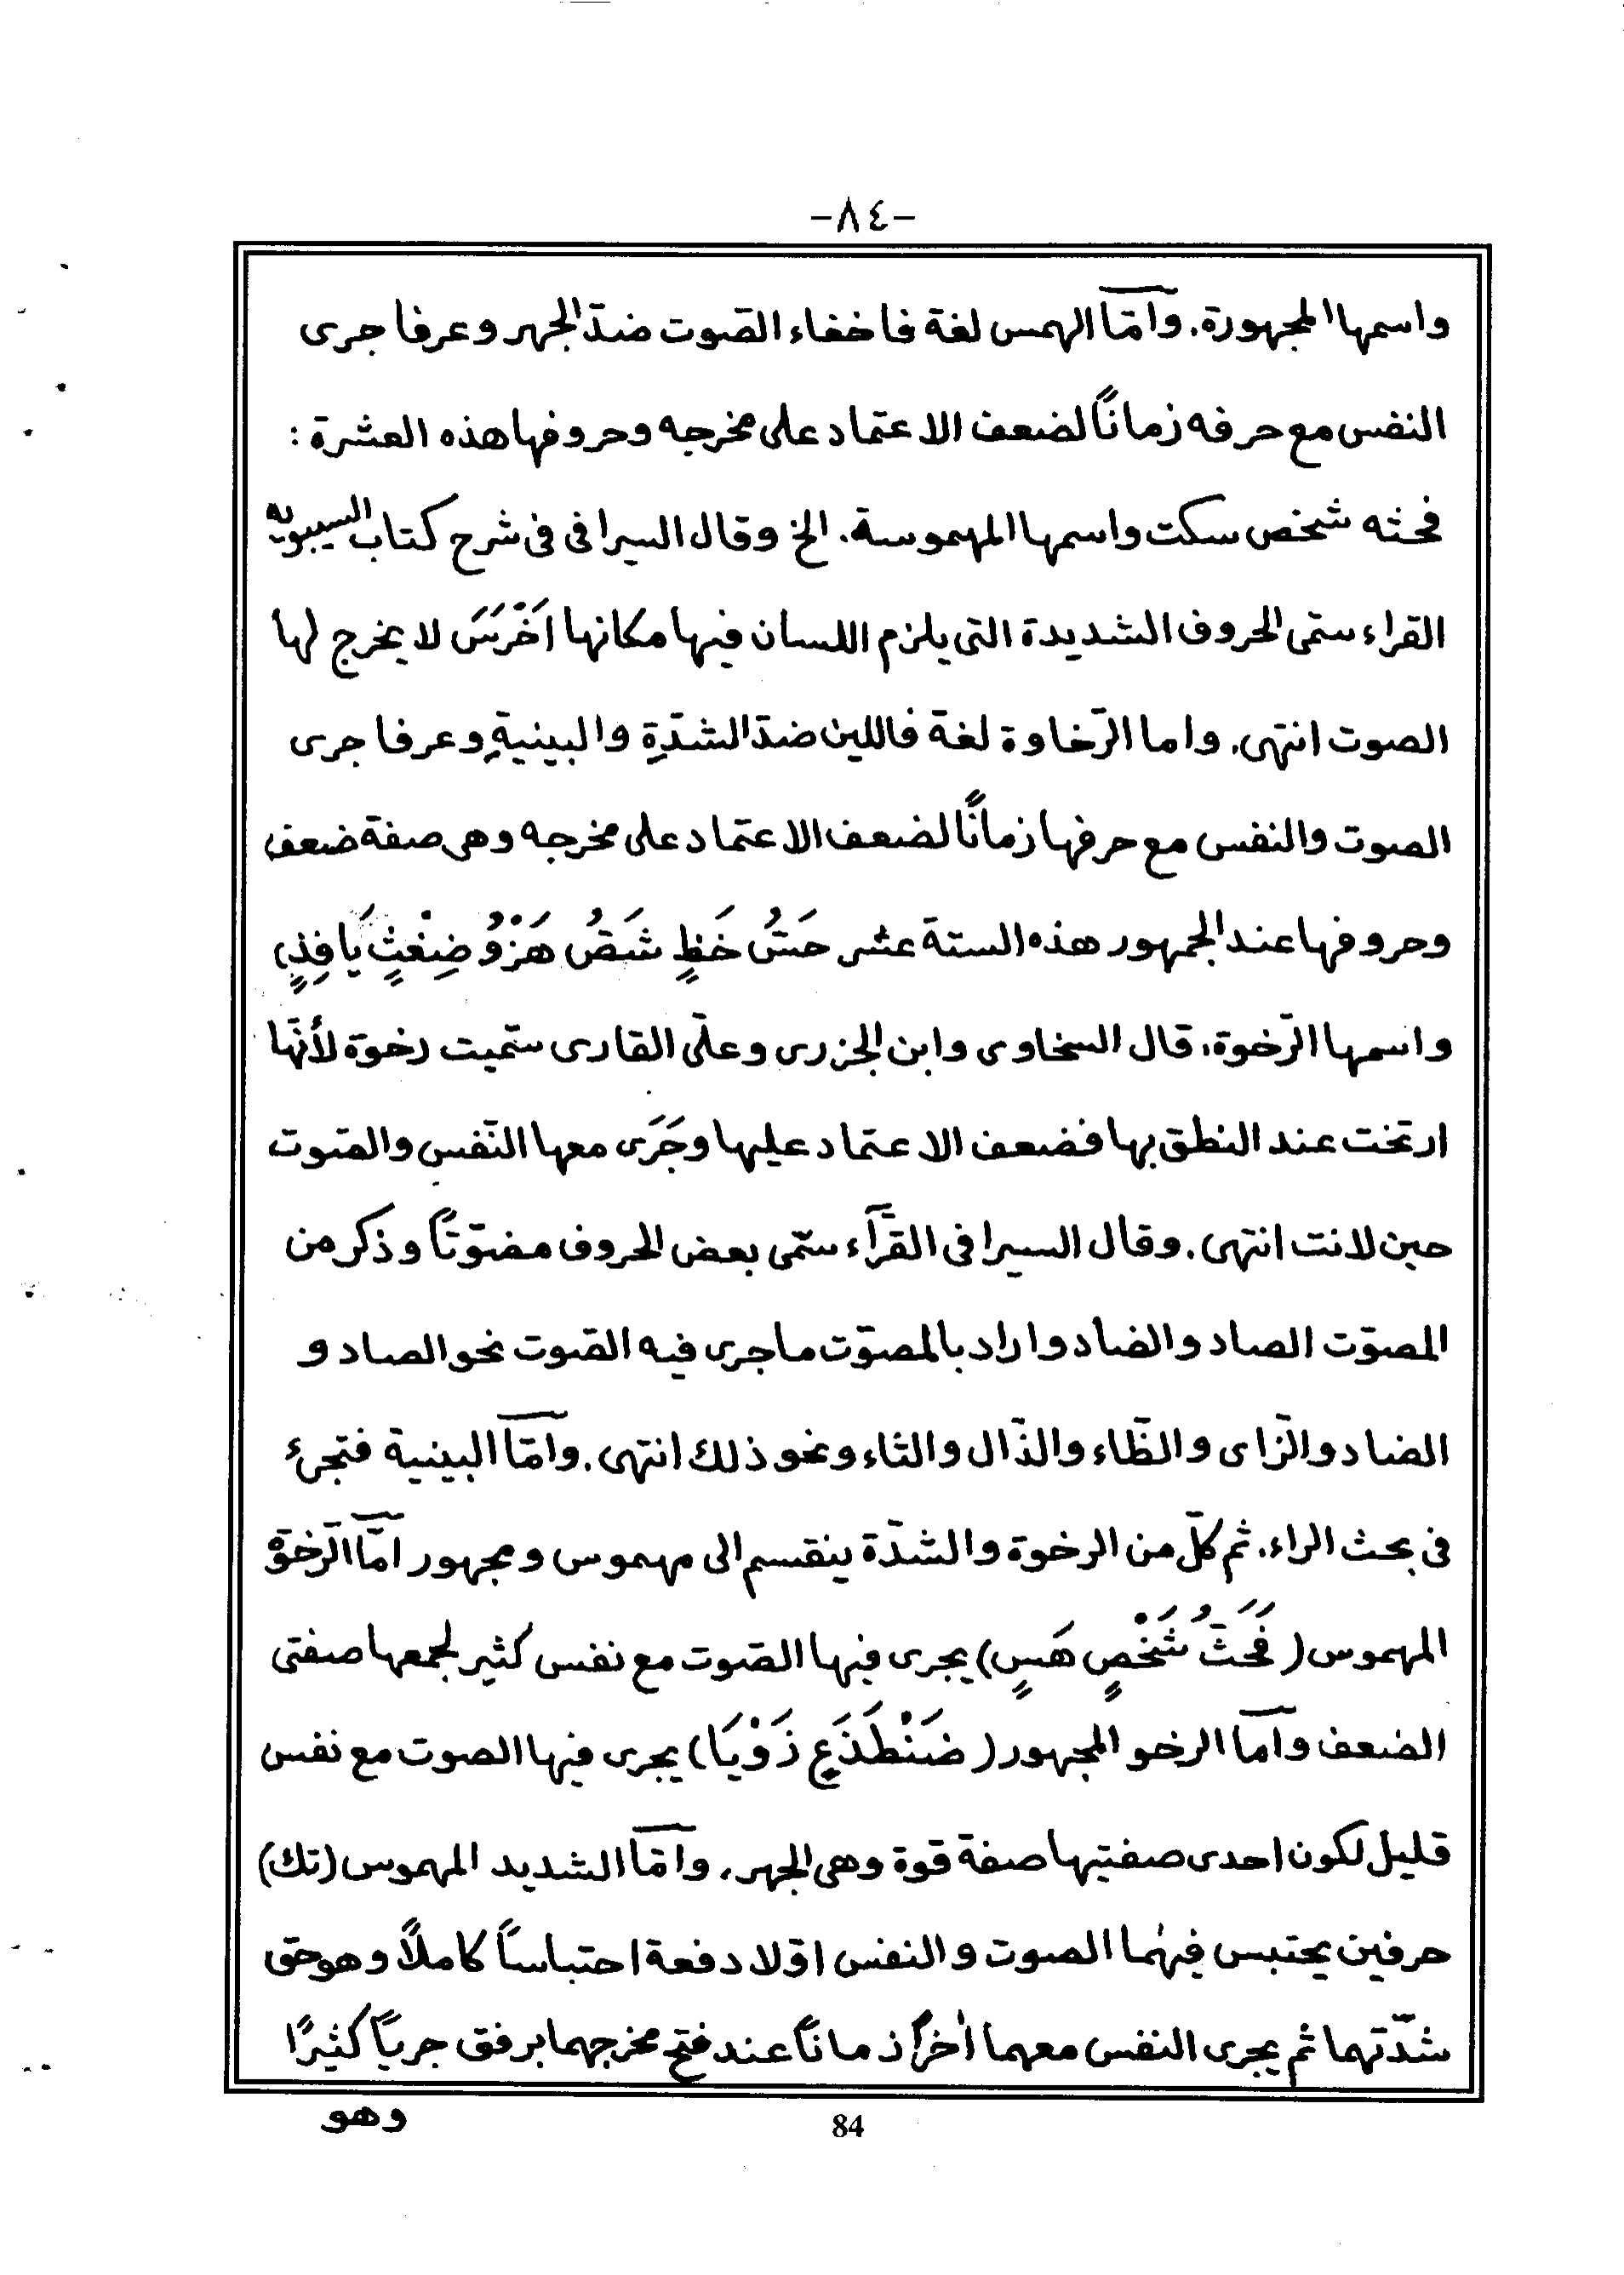 -٨٤-
واسمها المجهورة. وامّا الهمس لغة فاخفاء الصّوت ضدّ الجهر وعرفا جرى
النفس مع حرفه زماناً لضعف الاعتماد على مخرجه وحروفها هذه العشرة :
فحثه شخص سكت واسمها المهموسة. الخ وقال السيرافى فى شرح كتاب السيبويه
القراء سمّى الحروف الشديدة التى يلزم اللسان فيها مكانها اَخْرَسَ لا يخرج لها
الصوت انتهى. واما الرّخاوة لغة فاللين ضدّ الشدّةِ والبينيةِ وعرفا جرى
الصوت والنفس مع حرفها زماناً لضعف الاعتماد على مخرجه وهى صفة ضعف
وحروفها عند الجمهور هذه الستة عشر حَسُّ خَظٍّ شَصُ هَزْوُ ضِغْثٍ يَا فِذٍ
واسمها الرّخوة. قال السخاوى وابن الجزرى وعلّى القارى سمّيت رخوة لأنّها
ارتخت عند النطق بها فضعف الاعتماد عليها وجَرَى معها النّفس والصّوت
حين لانت انتهى. وقال السيرافى القرّآء سمّى بعض الحروف مصوّتاً وذكر من
المصوّت الصاد والضاد واراد بالمصوّت ماجرى فيه الصّوت نحو الصاد و
الضاد والزّاى والظّاء والذّال والثاء ونحو ذلك انتهى. وامّا البينية فتجىء
فى بحث الراء. ثم كلّ من الرخوة والشدّة ينقسم الى مهموس ومجهور امّا الرّخوة
المهموس (فَحَثَُ شَخْصٍ هَسٍ) يجرى فيها الصّوت مع نفس كثير لجمعها صفتى
الضعف وامّا الرخو المجهور (ضَنْطَذَعٍ زَوْيَا) يجرى فيها الصوت مع نفس
قليل لكون احدى صفتيها صفة قوة وهى الجهر. وامّا الشديد المهموس (تك)
حرفين يحتبس فيهما الصوت والنفس اوّلا دفعة احتباساً كاملاً وهو حق
شدّتهما ثم يجرى النفس معهما اٰخراً زماناً عند فتح مخرجهما برفق جرياً كثيرًا
وهو
84